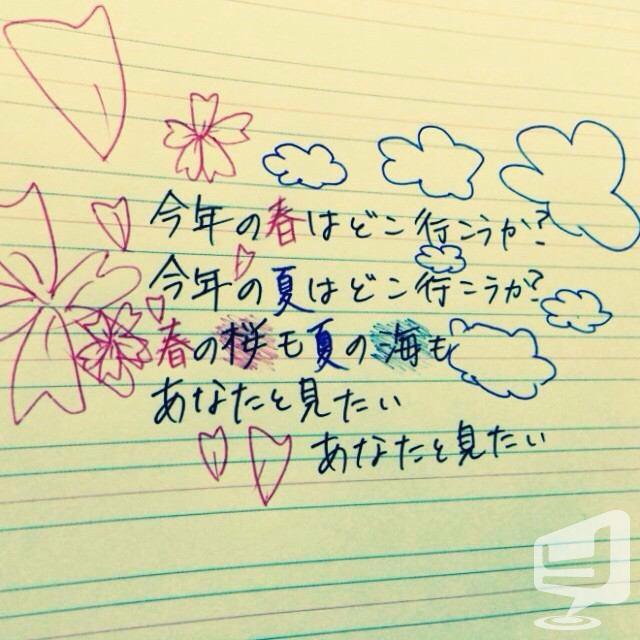 今年の春はどこ行こうか?
今年の夏はどこ行こうか?
春の桜も夏の海も
あなたと見たい
あなたと見たい